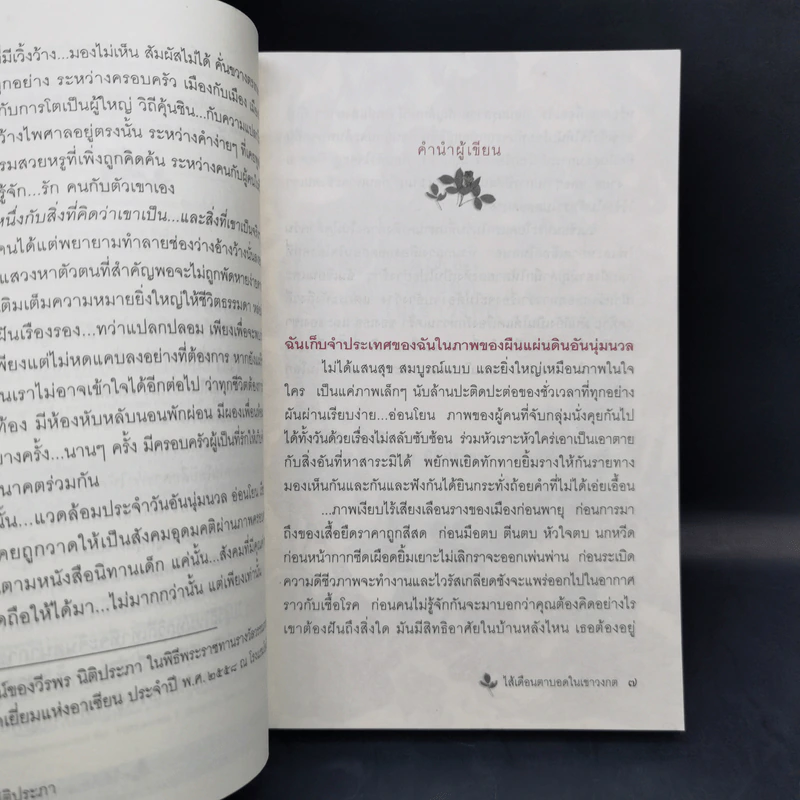 ที่มีเวิ้งว้าง...มองไม่เห็น สัมผัสไม่ได้ คั่นขวาง
ทุกอย่าง ระหว่างครอบครัว เมืองกับเมือง
กับการโตเป็นผู้ใหญ่ วิถีคุ้นชิน...กับความ
ว้างไพศาลอยู่ตรงนั้น ระหว่างคำง่ายๆ ที่
รมสวยหรูที่เพิ่งถูกคิดค้น ระหว่างคนกับ
รู้จัก...รัก คนกับตัวเขาเอง
หนึ่งกับสิ่งที่คิดว่าเขาเป็น...และสิ่งที่เขา
คนได้แต่พยายามทำลายช่องว่างอ้างว้างนั้น
แสวงหาตัวตนที่สำคัญพอจะไม่ถูกพัดหาย
เติมเต็มความหมายยิ่งใหญ่ให้ชีวิตธรรมดา
ฝันเรืองรอง...ทว่าแปลกปลอม เพียงเพื่อจะ
เพียงแต่ไม่หดแคบลงอย่างที่ต้องการ หาก
นเราไม่อาจเข้าใจได้อีกต่อไป ว่าทุกชีวิตต้อง
ท้อง มีห้องหับหลับนอนพักผ่อน มีผองเพื่อน
บางครั้ง...นานๆ ครั้ง มีครอบครัวผู้เป็นที่รักให้
นาคตร่วมกัน
นั้น...แวดล้อมประจำวันอันนุ่มนวล อ่อนโยน
คยถูกวาดให้เป็นสังคมอุดมคติผ่านภาพ
นตามหนังสือนิทานเด็ก แค่นั้น...สังคมที่มี
ดถือให้ได้มา...ไม่มากกว่านั้น แต่เพียงเท่านั้น
น์ของวีรพร นิติประภา ในพิธีพระราชทานรางวัล
เยี่ยมแห่งอาเซียน ประจำปี พ.ศ. ๒๕๕๘ ณ
ติประภา
คำนำผู้เขียน
ฉันเก็บจำประเทศของฉันในภาพของผืนแผ่นดินอันนุ่มนวล
ไม่ได้แสนสุข สมบูรณ์แบบ และยิ่งใหญ่เหมือนภาพในใจ
ใคร เป็นแค่ภาพเล็กๆ นับล้านปะติดปะต่อของชั่วเวลาที่ทุกอย่าง
ผันผ่านเรียบง่าย...อ่อนโยน ภาพของผู้คนที่จับกลุ่มนั่งคุยกันไป
ได้ทั้งวันด้วยเรื่องไม่สลับซับซ้อน ร่วมหัวเราะหัวใคร่เอาเป็นเอาตาย
กับสิ่งอันที่หาสาระมิได้ พยักพเยิดทักทายยิ้มรางให้กันรายทาง
มองเห็นกันและกันและฟังกันได้ยินกระทั่งถ้อยคำที่ไม่ได้เอ่ยเอื้อน
...ภาพเงียบไร้เสียงเลือนรางของเมืองก่อนพายุ ก่อนการมา
ถึงของเสื้อยืดราคาถูกสีสด ก่อนมือตบ ตีนตบ หัวใจตบ นกหวีด
ก่อนหน้ากากซีดเผือดยิ้มเยาะไม่เลิกราจะออกเพ่นพ่าน ก่อนระเบิด
ความดีชีวภาพจะทำงานและไวรัสเกลียดชังจะแพร่ออกไปในอากาศ
ราวกับเชื้อโรค ก่อนคนไม่รู้จักกันจะมาบอกว่าคุณต้องคิดอย่างไร
เขาต้องฝันถึงสิ่งใด มันมีสิทธิอาศัยในบ้านหลังไหน เธอต้องอยู่
ไส้เดือนตาบอดในเขาวงกต ๗